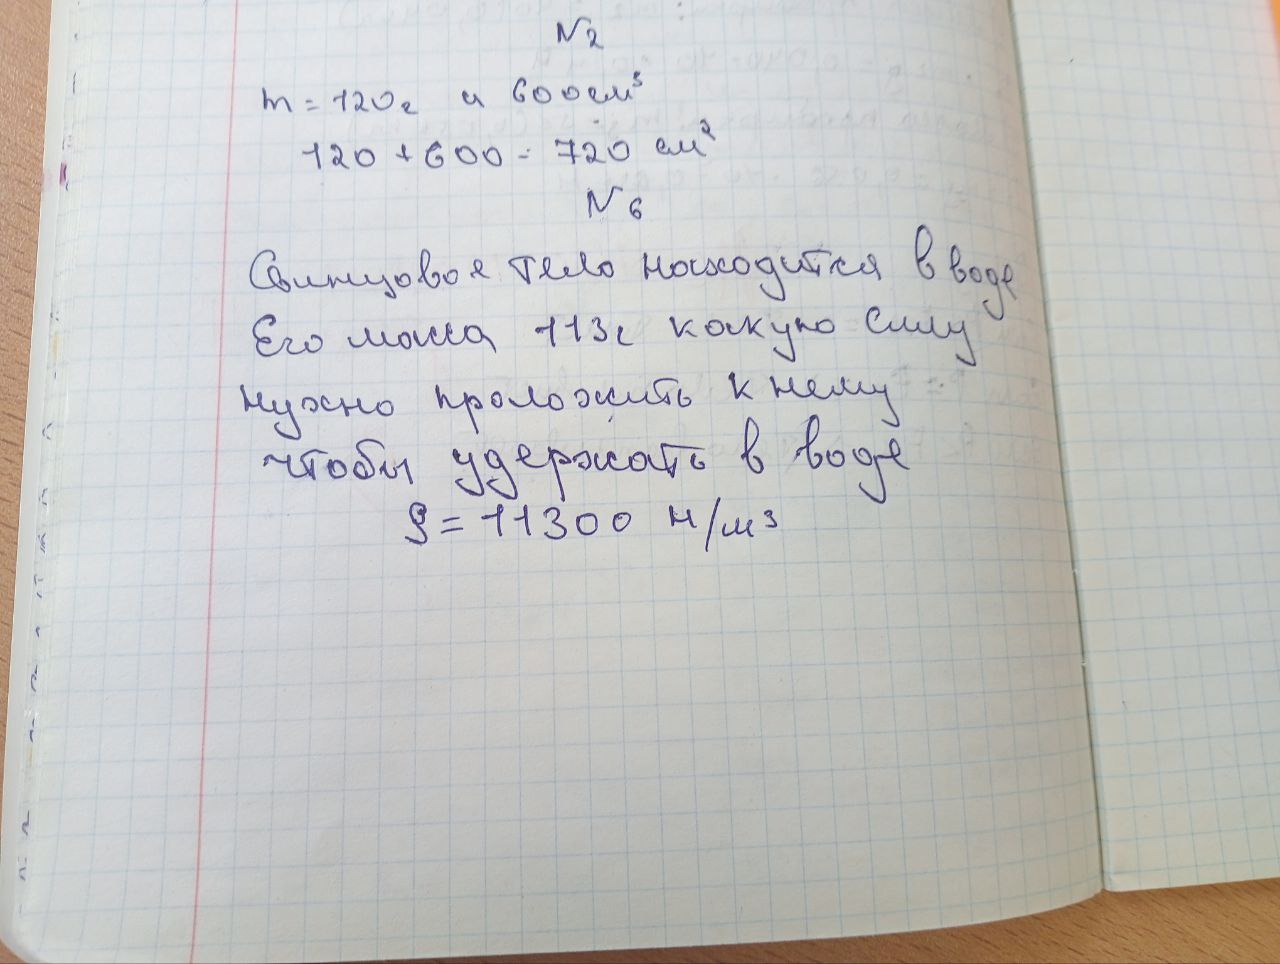 N2
m = 120г и 600см³
120 + 600 = 720 см²
N6
Свинцовое тело находится в воде
Его масса 113г какую силу
нужно проложить к нему
чтобы удержать в воде
ρ = 11300 н/м³